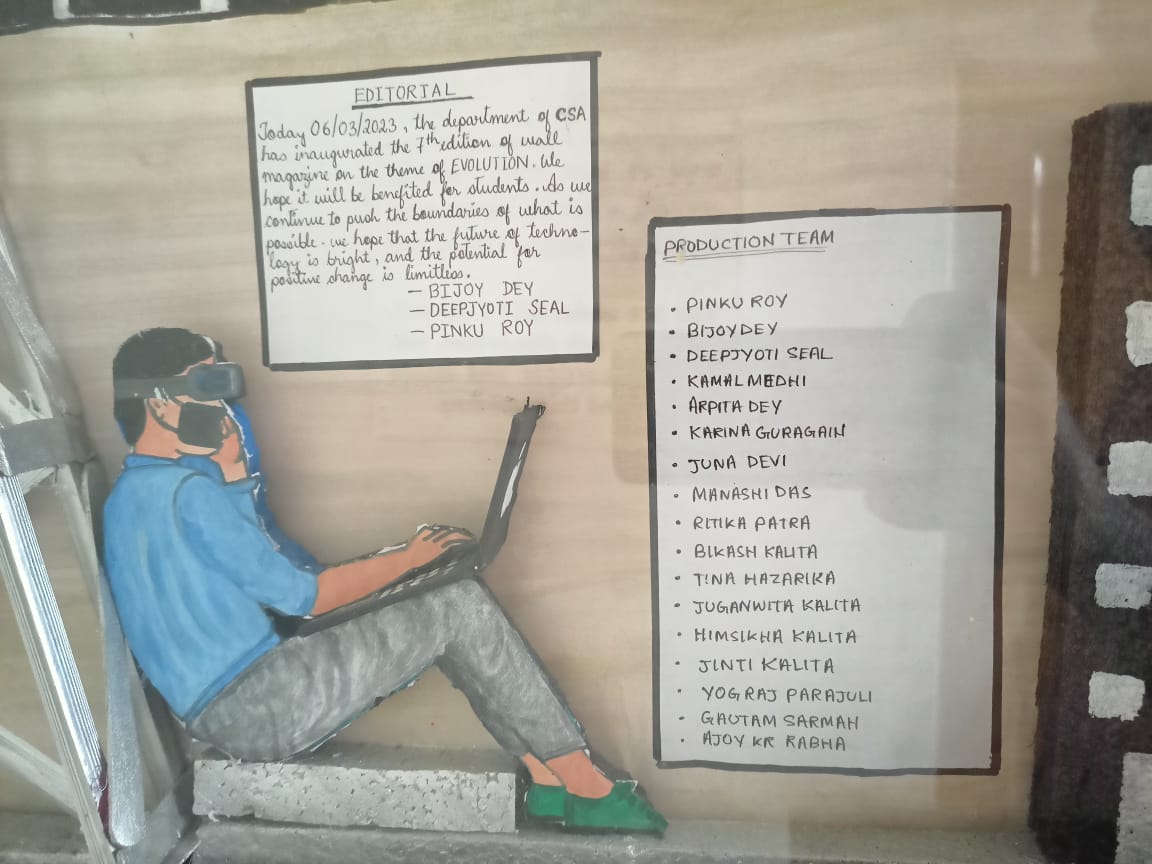 EDITORIAL
Today 06/03/2023, the department of CSA
has inaugurated the 7th edition of wall
magazine on the theme of EVOLUTION. We
hope it will be benefited for students. As we
continue to push the boundaries of what is
possible. we hope that the future of techno-
logy is bright, and the potential for
positive change is limitless.
- BIJOY DEY
- DEEPJYOTI SEAL
- PINKU ROY
PRODUCTION TEAM
• PINKU ROY
• BIJOY DEY
• DEEPJYOTI SEAL
• KAMAL MEDHI
• ARPITA DEY
• KARINA GURAGAIN
• JUNA DEVI
• MANASHI DAS
• RITIKA PATRA
• BIKASH KALITA
• TINA HAZARIKA
• JUGANWITA KALITA
• HIMSIKHA KALITA
• JINTI KALITA
• YOGRAJ PARAJULI
• GAUTAM SARMAH
• AJOY KR RABHA